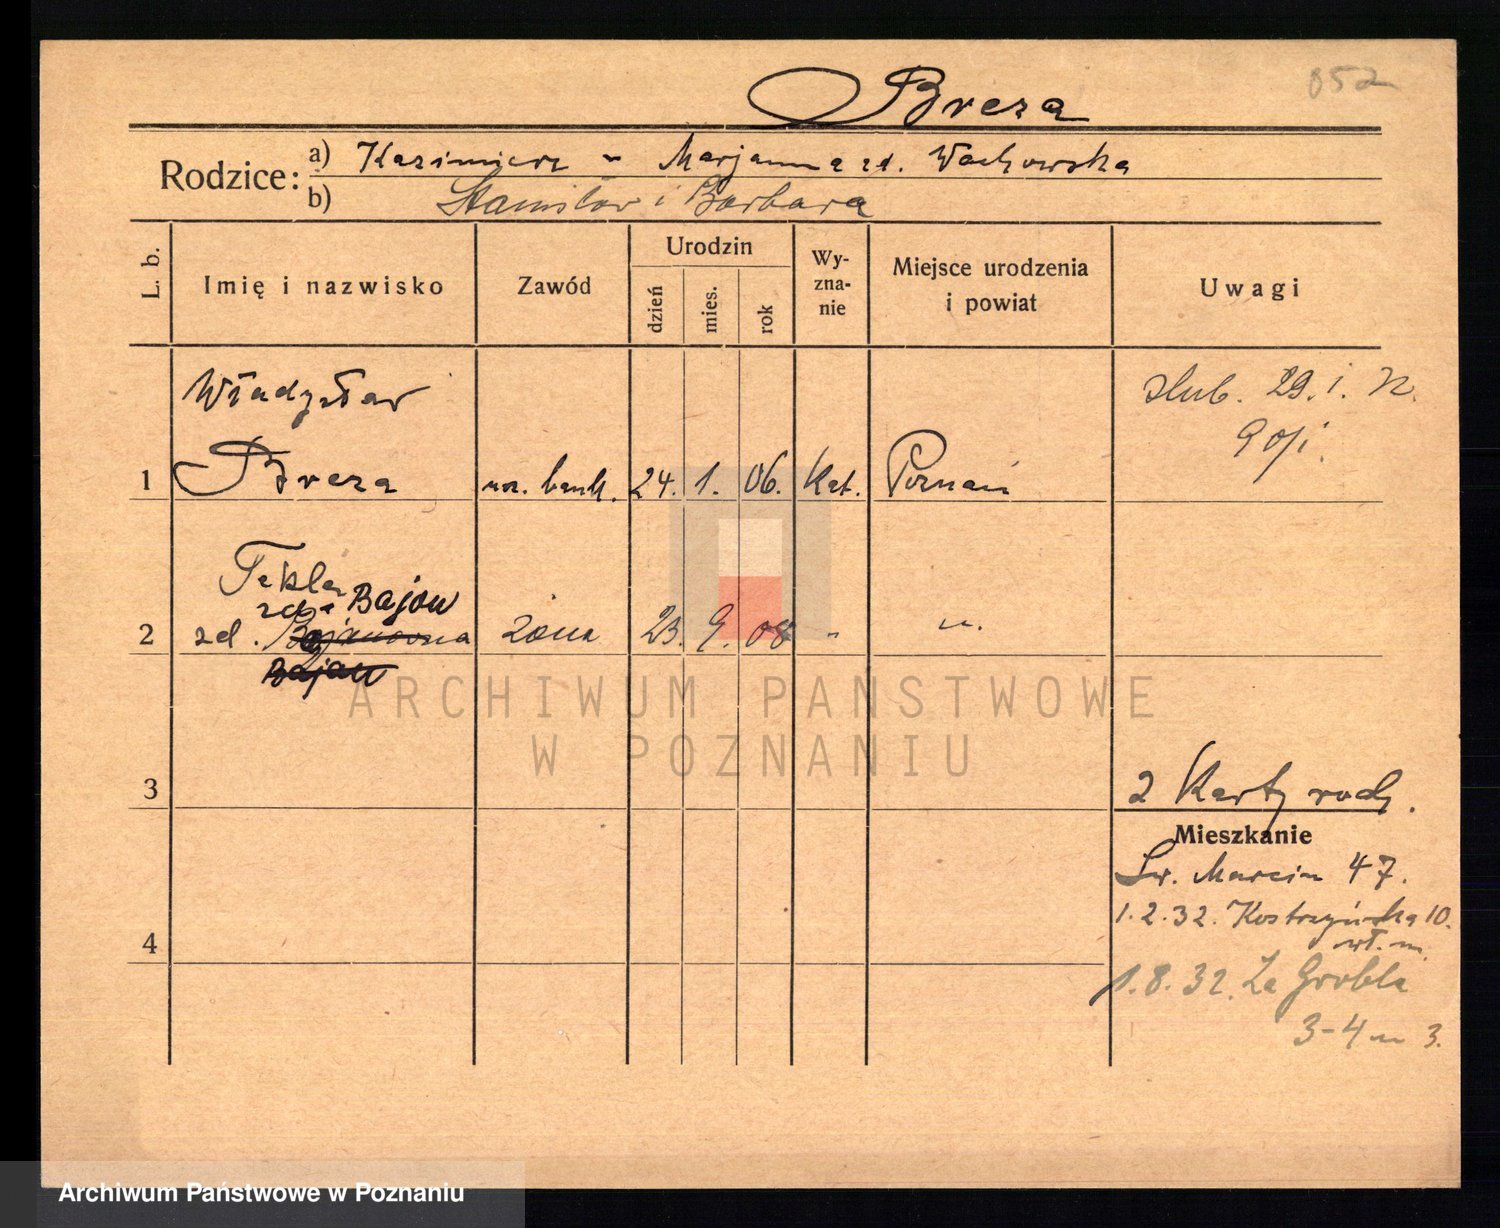 052
Breza
Rodzice:
a) Kazimierz - Marjanna zd. Wachowska
b) Stanisław i Barbara
L. b.
Imię i nazwisko
Zawód
Urodzin
dzień
mies.
rok
Wy-
zna-
nie
Miejsce urodzenia
i powiat
Uwagi
Władysław
ślub. 29. I.
1 Breza urz. bank. 24. 1. 06. Kat. Poznań
Tekla
Bajon
2 zd. Bajanowna żona 23. 9. 08 " "
Bajan
ARCHIWUM PAŃSTWOWE
W POZNANIU
3
2 Karty rodz.
Mieszkanie
Św. Marcin 47.
1.2.32. Kostrzyńska 10.
wł. m.
4
1.8.32. Za Groblą
3-4 m 3.
Archiwum Państwowe w Poznaniu